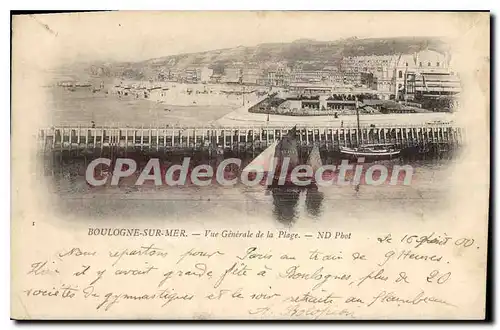 CPArama.com
BOULOGNE-SUR-MER. — Vue Générale de la Plage. — ND Phot
Le 16 Août 00.
Nous repartons pour Paris au train de 9 heures.
Hier il y avait grande fête à Boulogne plus de 20
sociétés de gymnastiques et le soir retraite au flambeau